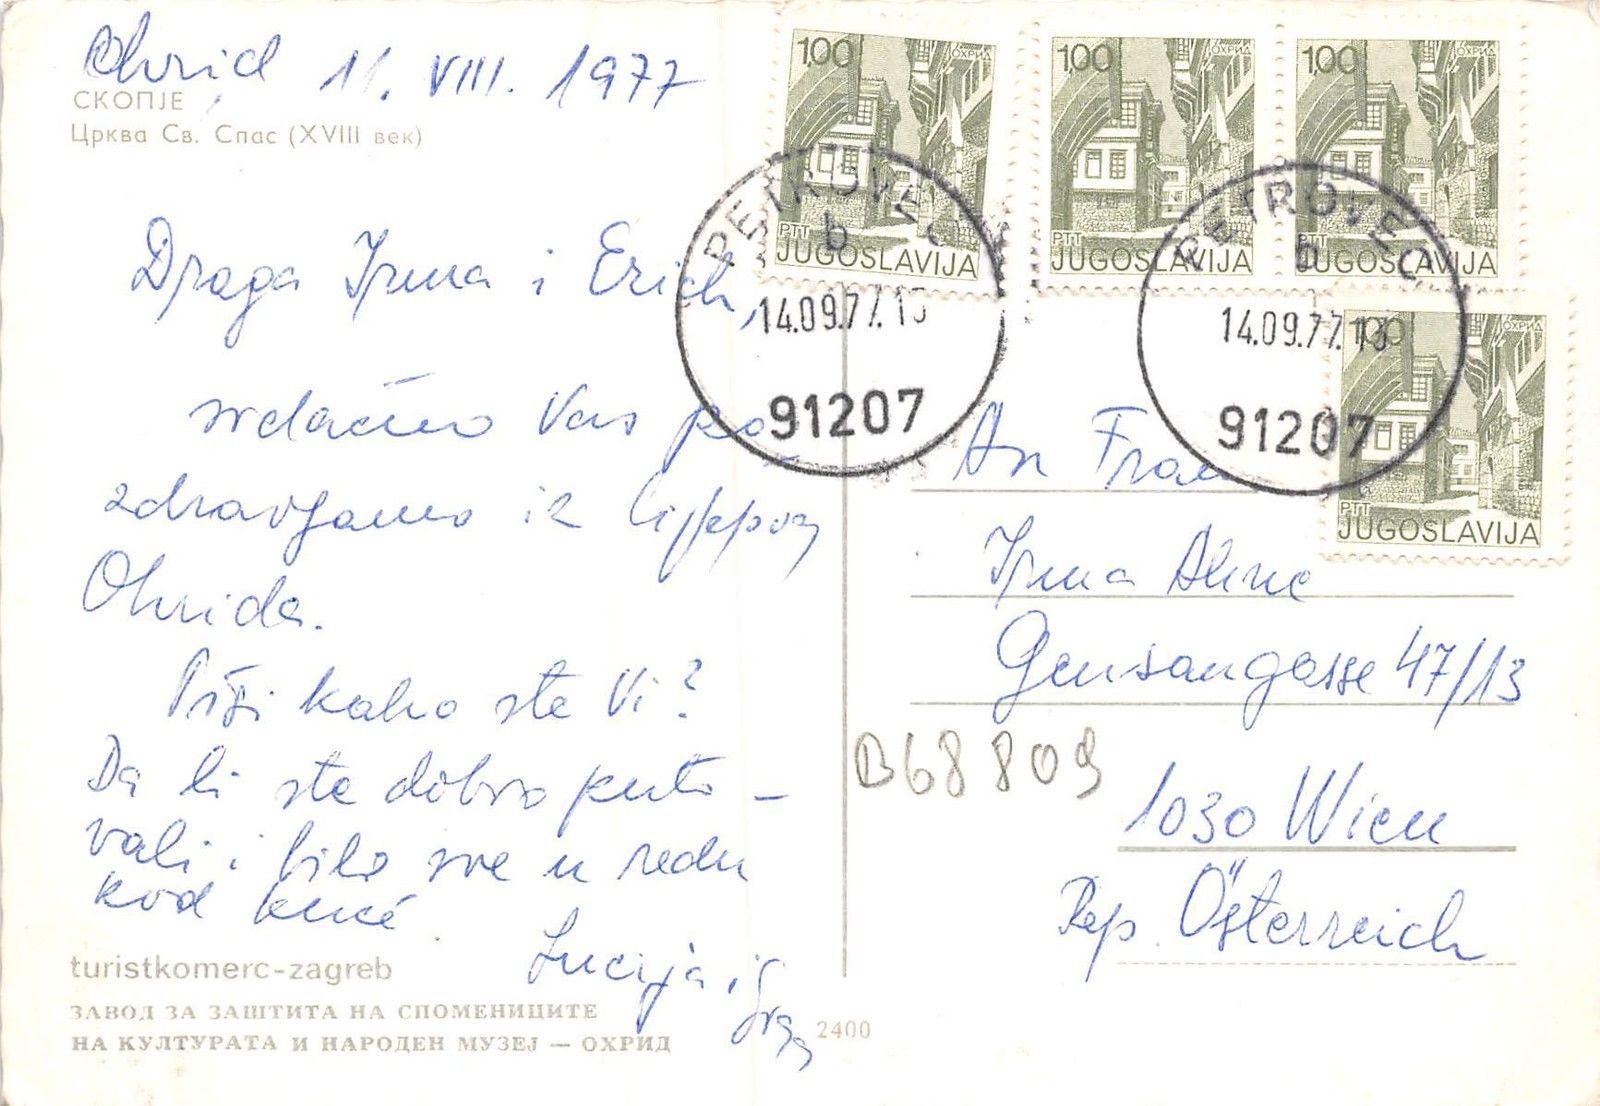 Ohrid 11. VIII. 1977
СКОПЈЕ
Црква Св. Спас (XVIII век)
Draga Irma i Erich,
srdačno Vas po-
zdravljamo iz lijepog
Ohrida.
Piši kako ste Vi?
Da li ste dobro puto-
vali i bilo sve u redu
kod kuće.
Lucija i
turistkomerc-zagreb
ЗАВОД ЗА ЗАШТИТА НА СПОМЕНИЦИТЕ
НА КУЛТУРАТА И НАРОДЕН МУЗЕЈ — ОХРИД
2400
1,00
ОХРИД
PTT
JUGOSLAVIJA
1,00
ОХРИД
PTT
JUGOSLAVIJA
1,00
ОХРИД
PTT
JUGOSLAVIJA
1,00
ОХРИД
PTT
JUGOSLAVIJA
PETROVEC
b
14.09.77.
91207
PETROVEC
b
14.09.77.
91207
An Frau
Irma
Geusaugasse 47/13
B68809
1030 Wien
Rep. Österreich